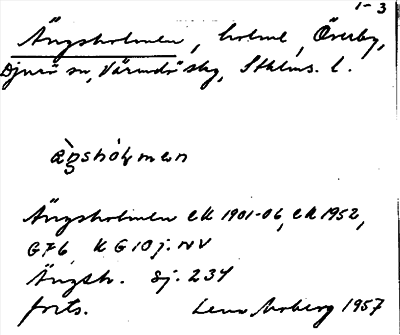 1-3
Ängsholmen, holme, Överby,
Djurö sn, Värmdö skg, Sthlms. l.
ägshòlmen
Ängsholmen EK 1901-06, EK 1952,
GFb, KG 10 j. NV
Ängsh. Sj. 234
forts. Lena Moberg 1957